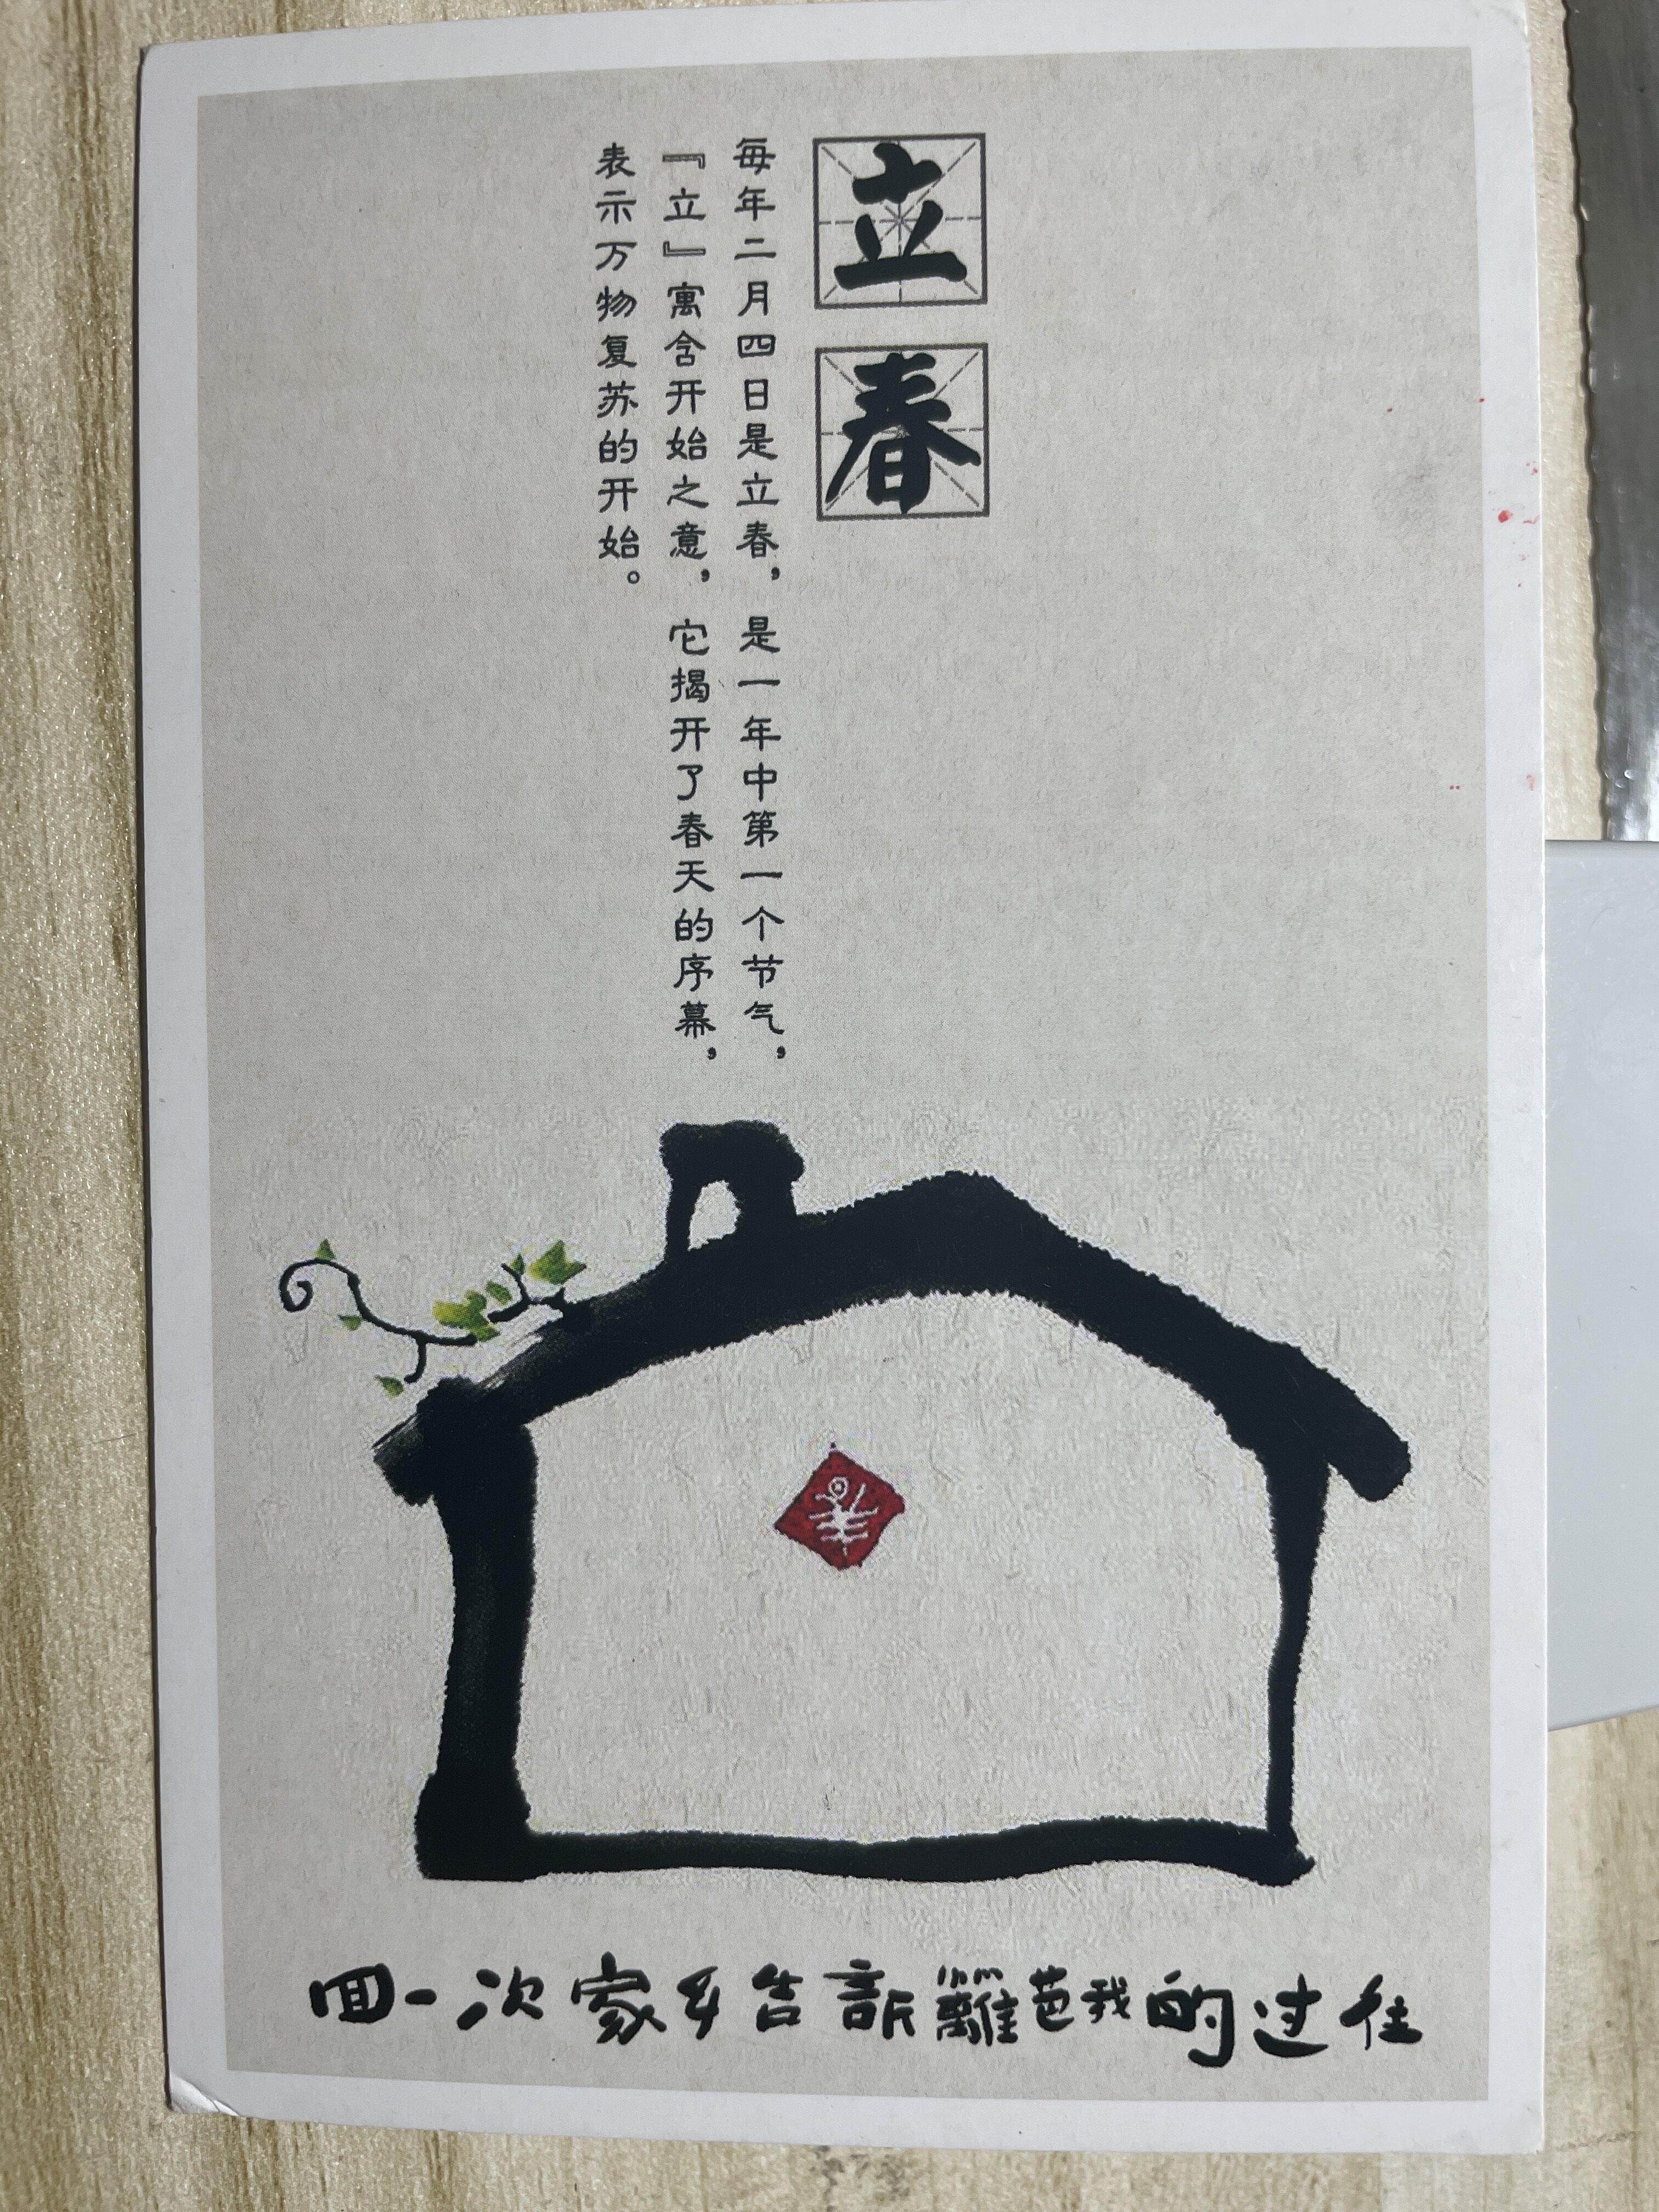 立春
每年二月四日是立春，是一年中第一个节气，
『立』寓含开始之意，它揭开了春天的序幕，
表示万物复苏的开始。
回一次家乡告訴籬芭我的过往